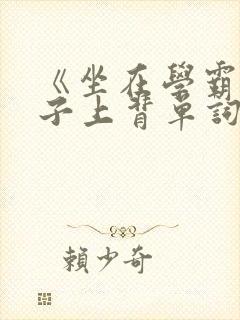 《坐在學霸
子上背單詞
賴少奇